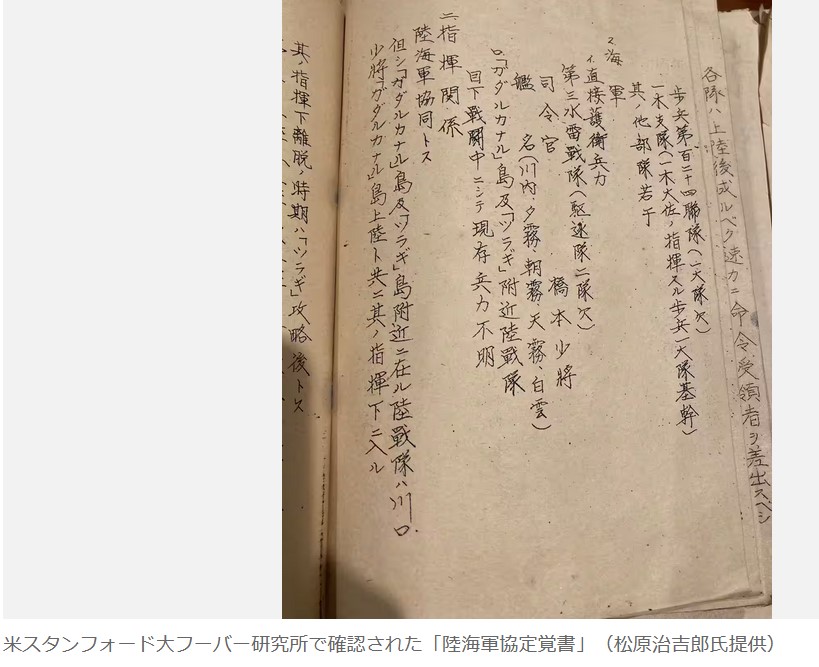 各隊ハ上陸後成ルベク速カニ命令受領者ヲ差出スベシ
歩兵第百二十四聯隊(一大隊欠)
一木支隊(一木大佐ノ指揮スル歩兵一大隊基幹)
其ノ他部隊若干
2海軍
イ、直接護衛兵力
第三水雷戦隊(駆逐隊二隊欠)
司令官 橋本少将
艦名(川内、夕霧、朝霧、天霧、白雲)
ロ、「ガダルカナル」島及「ツラギ」附近陸戰隊
目下戰闘中ニシテ現存兵力不明
二、指揮関係
陸海軍協同トス
但シ「ガダルカナル」島及「ツラギ」島附近ニ在ル陸戰隊ハ川口
少將「ガダルカナル」島上陸ト共ニ其ノ指揮下ニ入ル
其ノ指揮下離脱ノ時期ハ「ツラギ」攻略後トス
米スタンフォード大フーバー研究所で確認された「陸海軍協定覚書」（松原治吉郎氏提供）